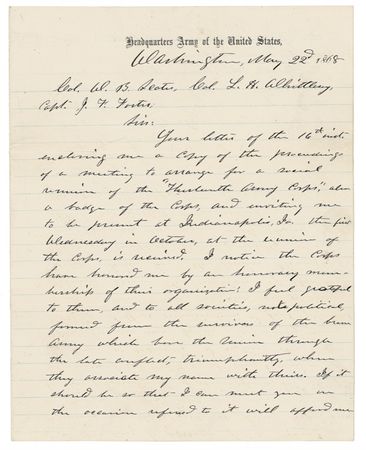 Headquarters Army of the United States,
Washington, May 22d 1868
Col. W. B. Scates, Col. L. H. Whittlesey,
Capt. J. F. Foster,
Sir:
Your letter of the 16th inst.
enclosing me a copy of the proceedings
of a meeting to arrange for a social
reunion of the "Thirteenth Army Corps," also
a badge of the Corps, and inviting me
to be present at Indianapolis, Ia. the first
Wednesday in October, at the reunion of
the Corps, is received. I notice the Corps
have honored me by an honorary mem-
bership of their organization. I feel grateful
to them, and to all societies, not political,
formed from the survivors of the
Army which bore the Union through
the late conflict, triumphantly, when
they associate my name with theirs. If it
should be so that I can meet you on
the occasion referred to it will afford me